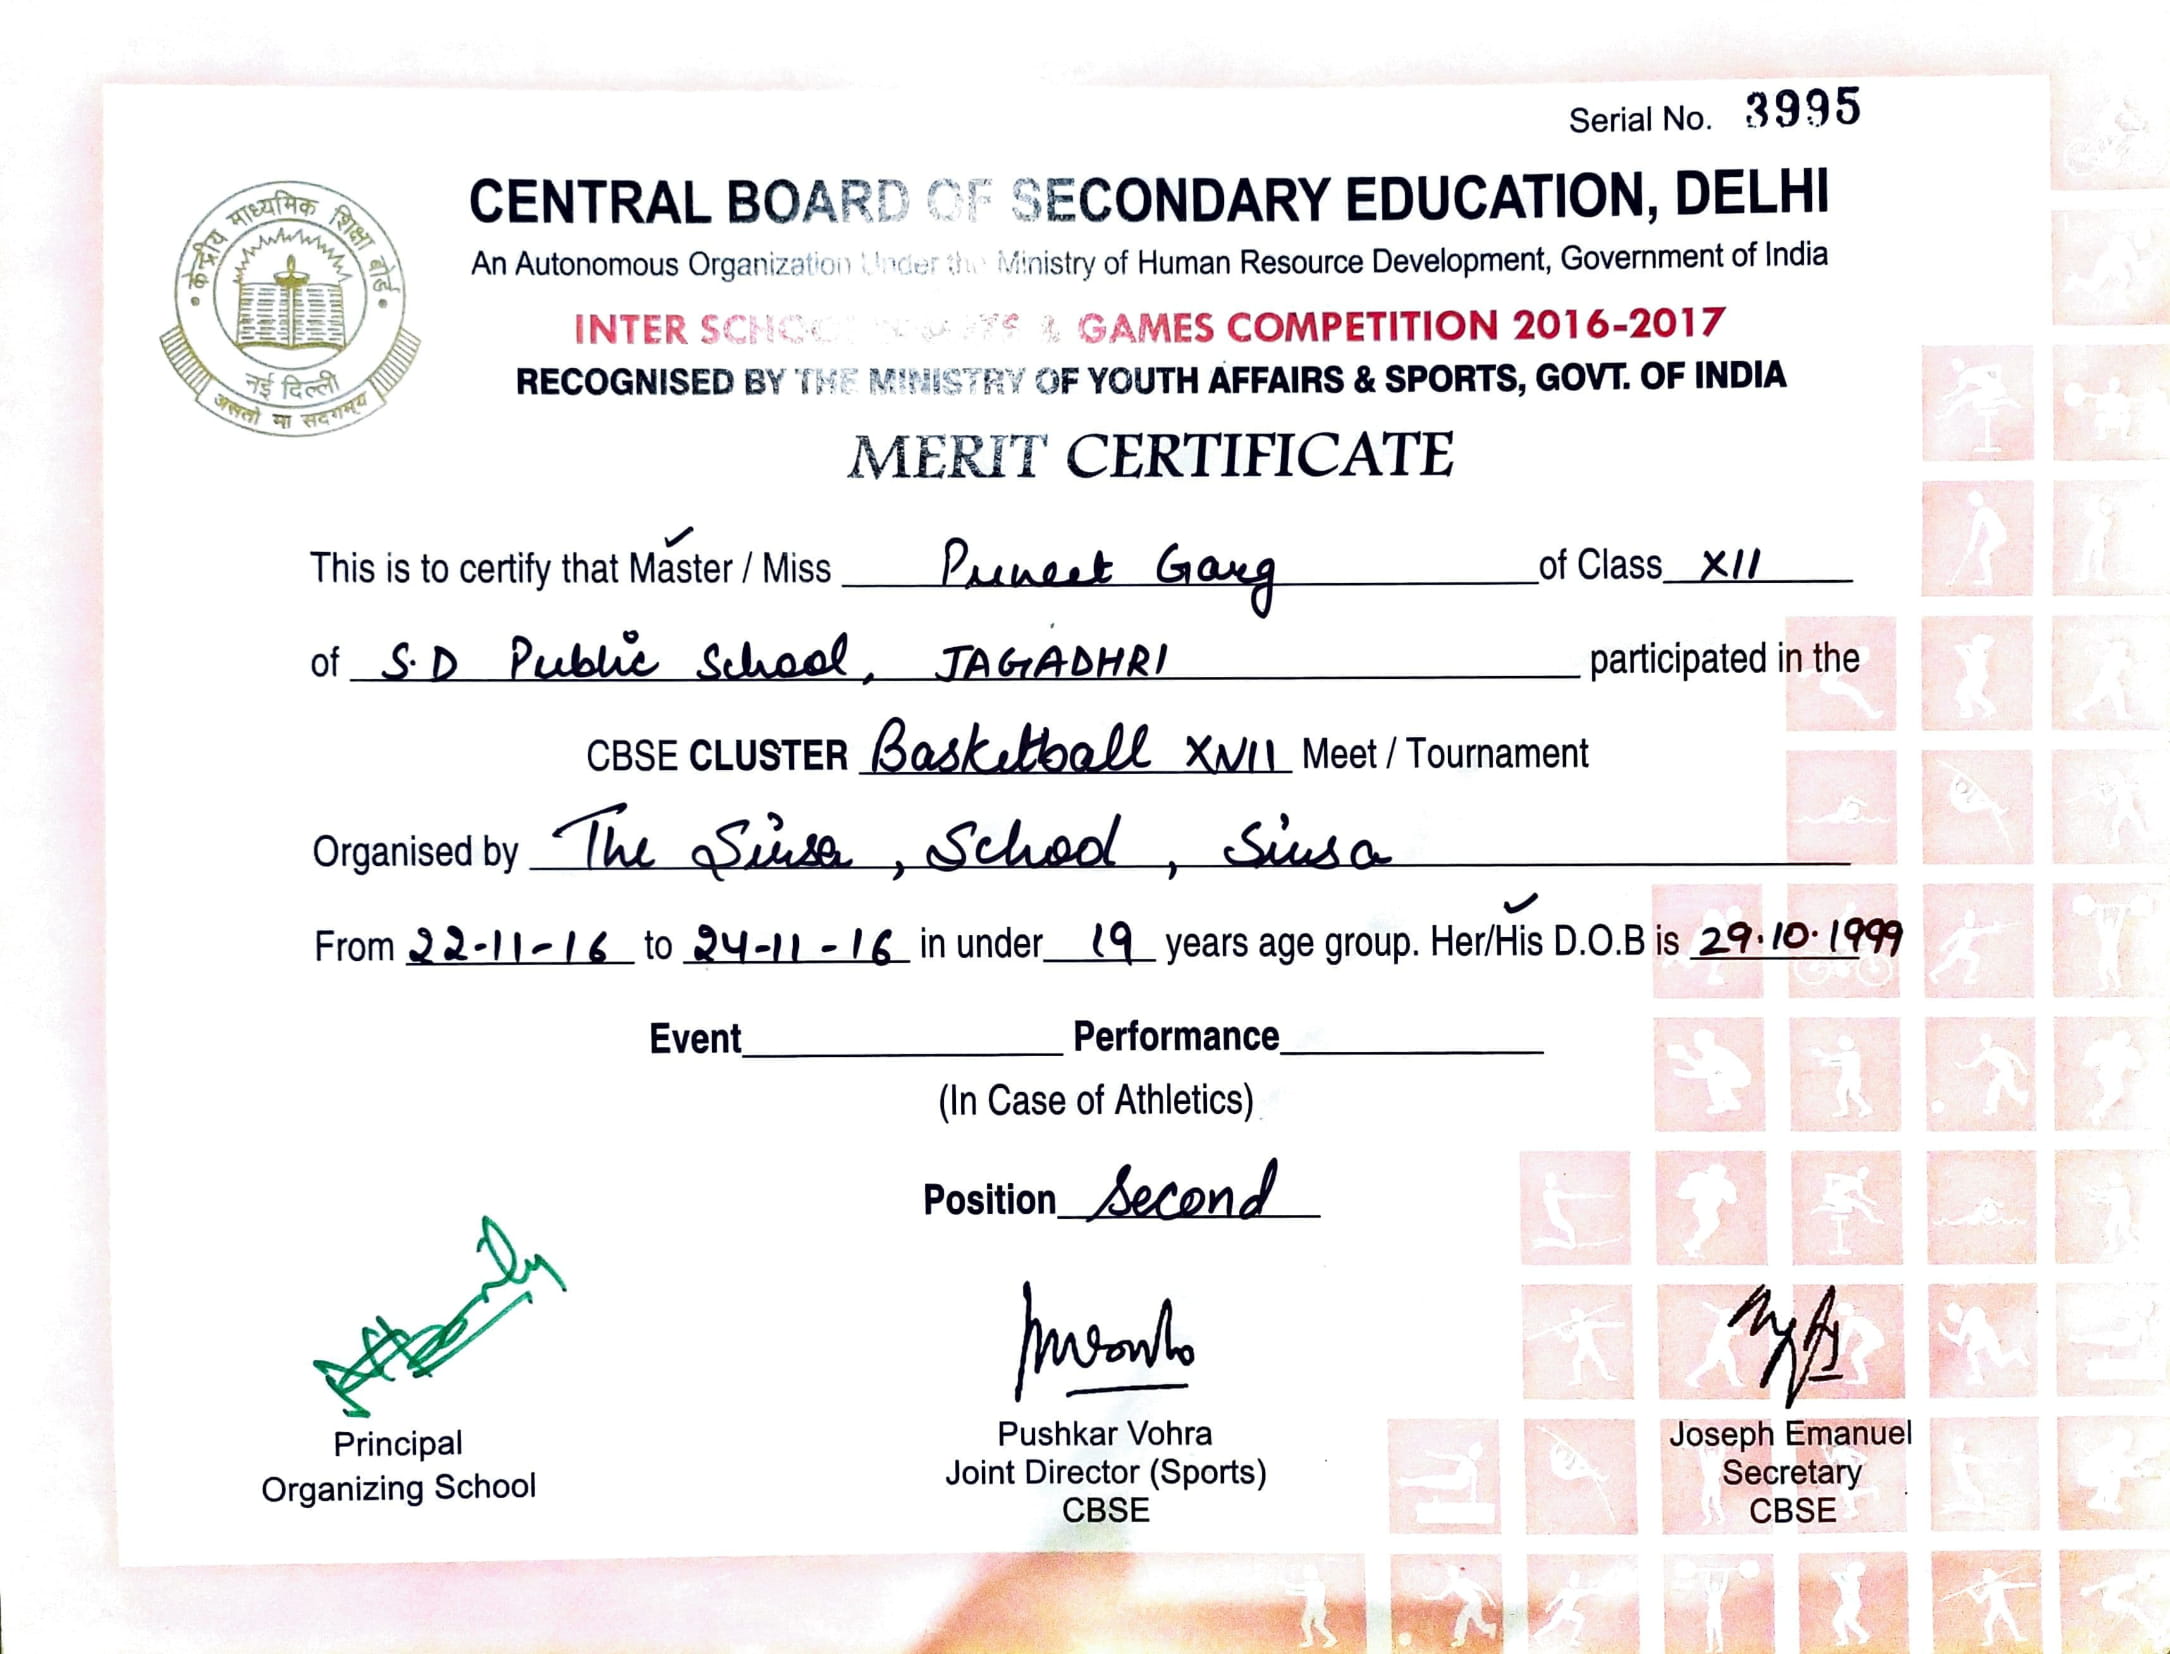 Serial No. 3995
केन्द्रीय माध्यमिक शिक्षा बोर्ड
नई दिल्ली
असतो मा सदगमय
CENTRAL BOARD OF SECONDARY EDUCATION, DELHI
An Autonomous Organization Under the Ministry of Human Resource Development, Government of India
INTER SCHOOL SPORTS & GAMES COMPETITION 2016-2017
RECOGNISED BY THE MINISTRY OF YOUTH AFFAIRS & SPORTS, GOVT. OF INDIA
MERIT CERTIFICATE
This is to certify that Master / Miss Puneet Garg of Class XII
of S.D Public School, JAGADHRI participated in the
CBSE CLUSTER Basketball XVII Meet / Tournament
Organised by The Sirsa, School, Sirsa
From 22-11-16 to 24-11-16 in under 19 years age group. Her/His D.O.B is 29.10.1999
Event Performance
(In Case of Athletics)
Position Second
Principal
Organizing School
Pushkar Vohra
Joint Director (Sports)
CBSE
Joseph Emanuel
Secretary
CBSE